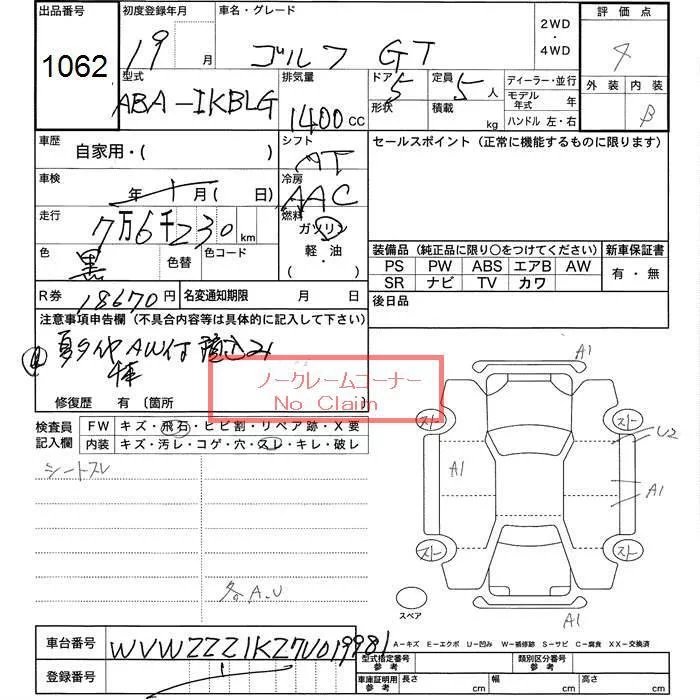 出品番号 1062
初度登録年月 19 月
車名・グレード ゴルフ GT
2WD
・
4WD
評価点 4
外装 内装 B
型式 ABA-1KBLG
排気量 1400 CC
ドア 5 形状
定員 5 人 積載 kg
ディーラー・並行
モデル年式 年
ハンドル 左・右
車歴 自家用・( )
シフト AT
セールスポイント(正常に機能するものに限ります)
車検 年 月( 日)
冷房 AAC
走行 7万6千230 km
燃料 ガソリン
軽・油
・( )
色 黒 色替 色コード
装備品(純正品に限り○をつけてください)
新車保証書 有・無
PS PW ABS エアB AW
SR ナビ TV カワ
R券 18670円 名変通知期限 月 日
後日品
注意事項申告欄(不具合内容等は具体的に記入して下さい)
夏タイヤAW付 積込み
修復歴 有〔箇所 〕
ノークレームコーナー
No Claim
検査員記入欄
FW キズ・飛石・ヒビ割・リペア跡・X要
内装 キズ・汚レ・コゲ・穴・スレ・キレ・破レ
シートスレ
各A.U
A1
スト スト
U2
A1
A1
スト スト
スペア
A1
車台番号 WVWZZZ1KZ7U019981
登録番号
A−キズ E−エクボ U−凹み W−補修跡 S−サビ C−腐食 XX−交換済
型式指定番号 参考
類別区分番号 参考
車庫証明用 参考 長さ cm 幅 cm 高さ cm